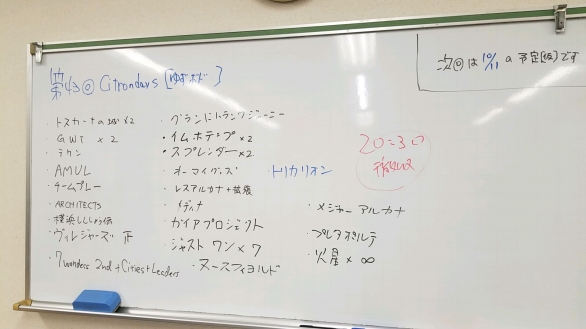 第43回 Citrondars [ゆずボド]
次回は 10/11 の予定(仮)です
・トスカーナの城×2
・GWT × 2
・テケン
・AMUL
・チームプレー
・ARCHITECTS
・横浜ししょう伝
・ヴィレジャーズ 正
・7 wonders 2nd + Cities + Leaders
・グランドトランクジャーニー
・イムホテップ×2
・スプレンダー×2
・オーマイグッズ
・レスアルカナ+拡張
・メディナ
・ガイアプロジェクト
・ジャスト ワン × 7
・ヌースフィヨルド
・トリカリオン
20:30
・メジャー アルカナ
・プレタポルテ
・火星 × ∞